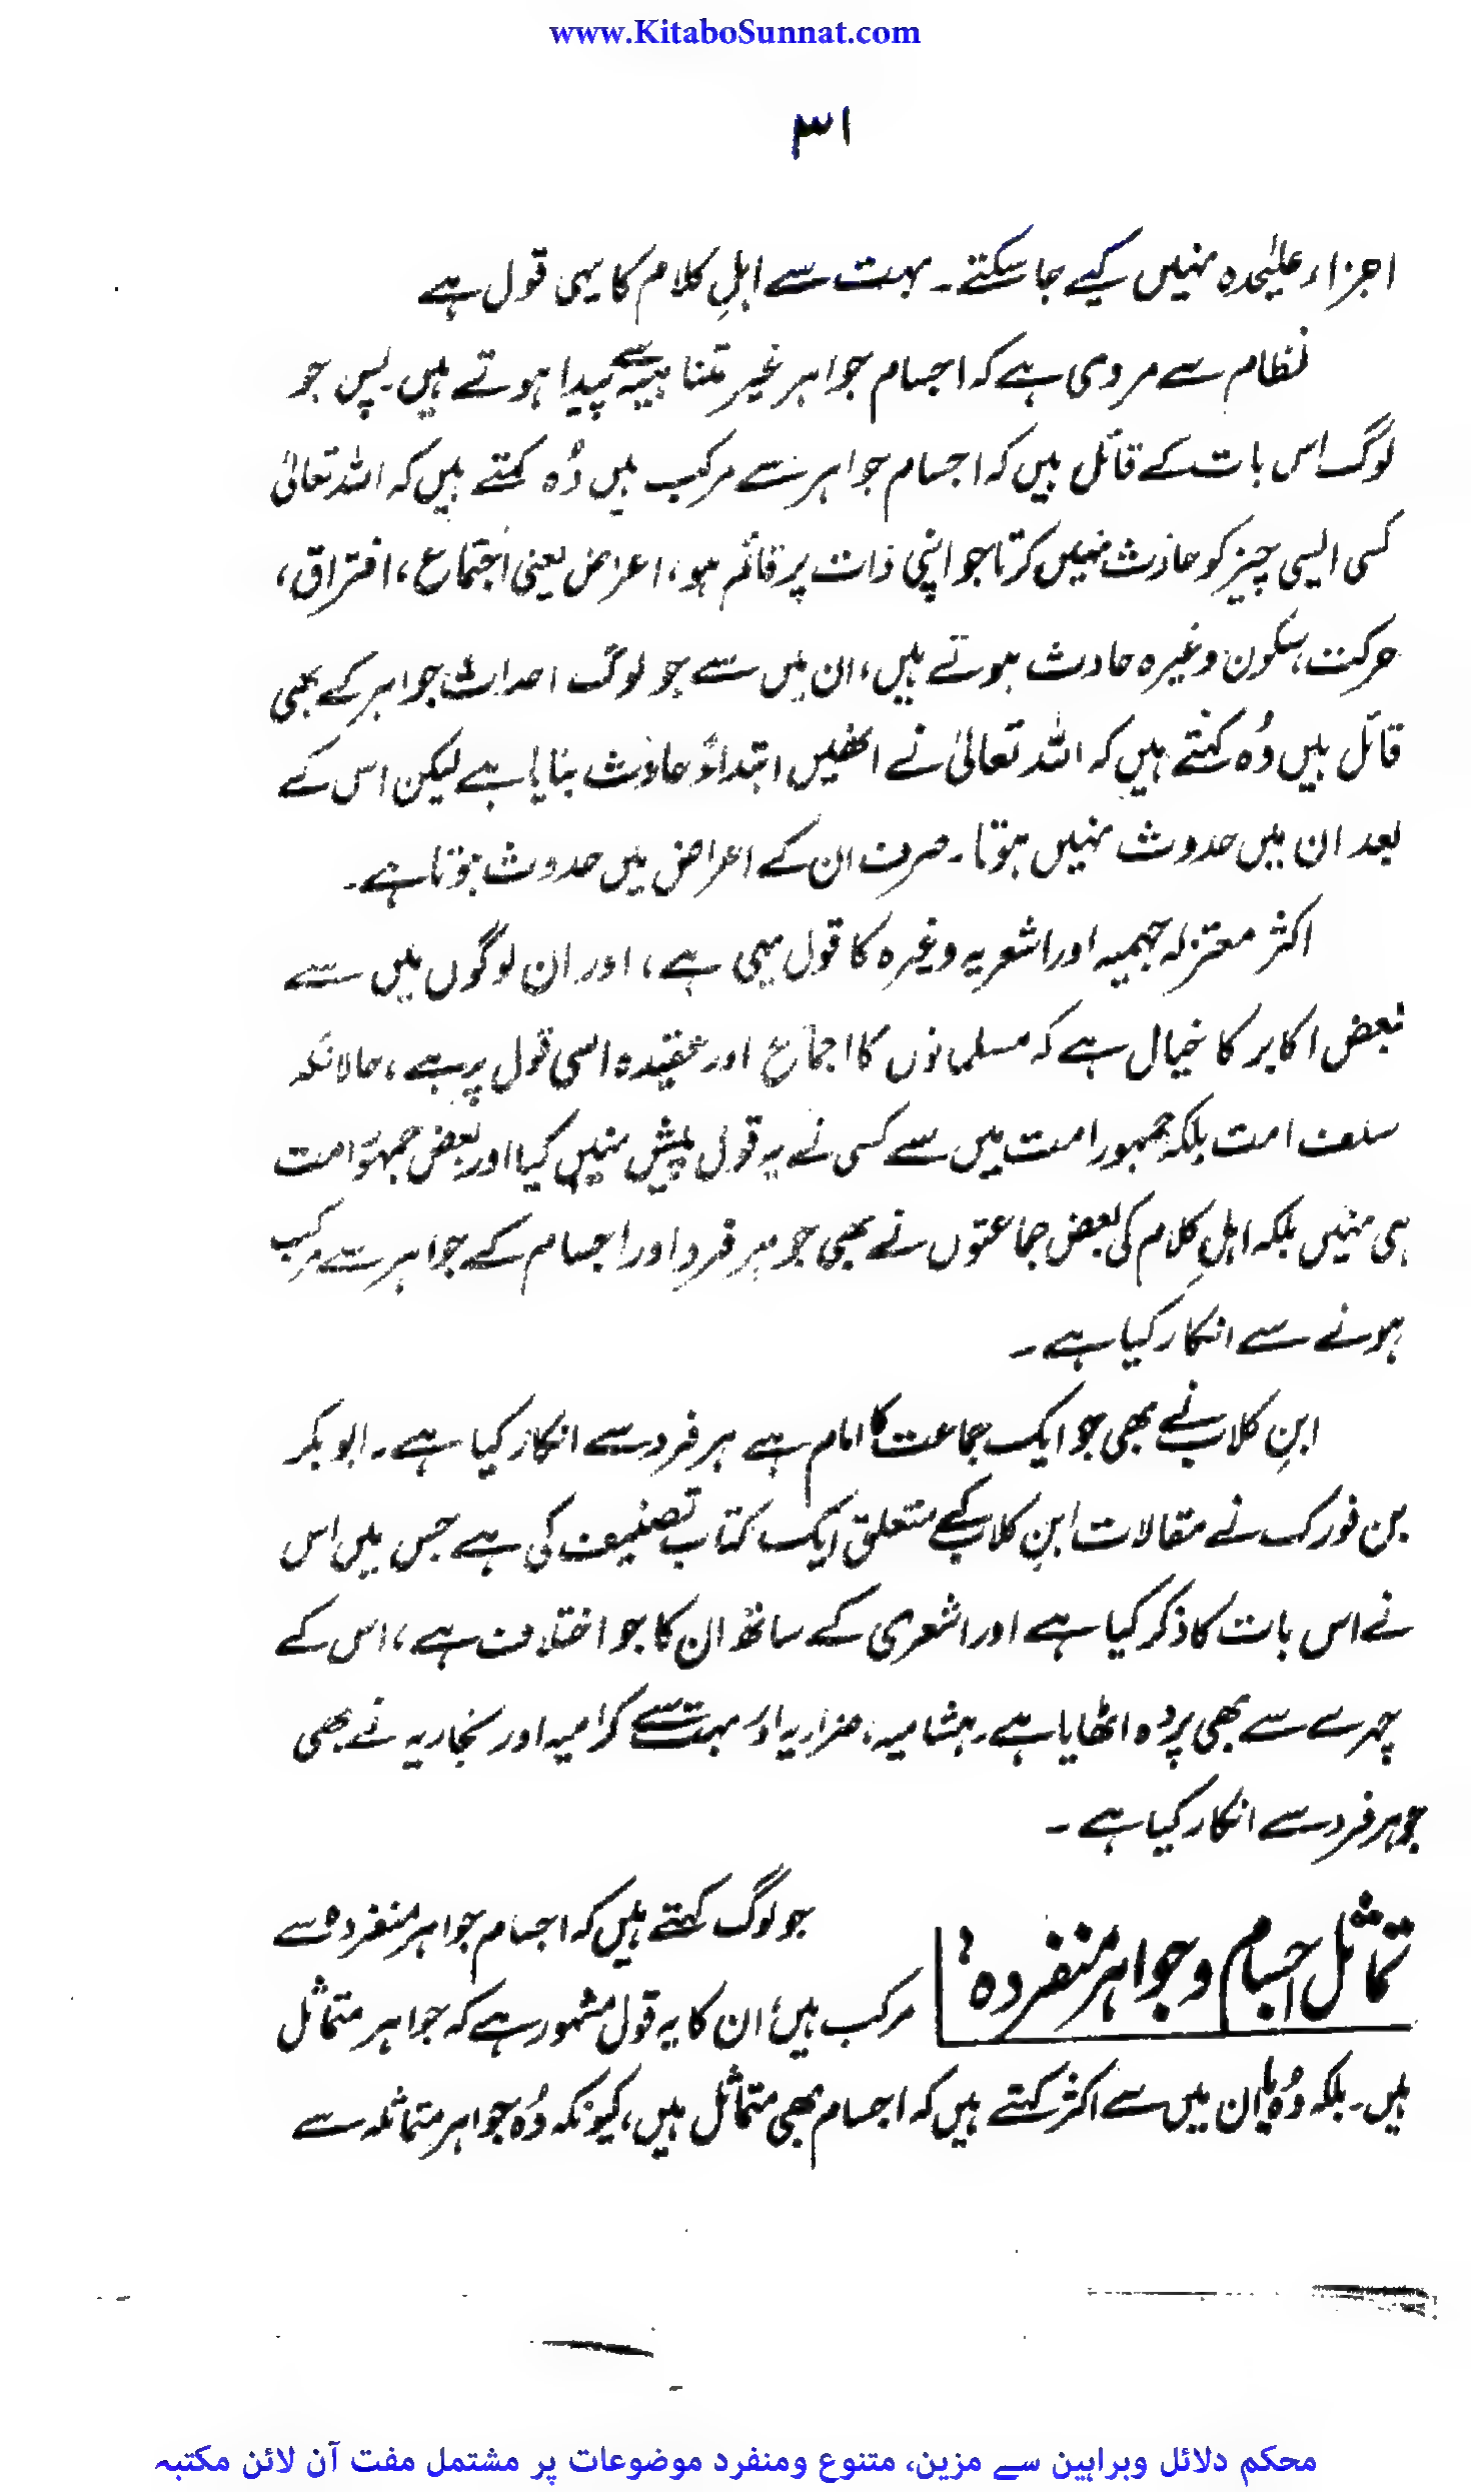 www.KitaboSunnat.com
۳۱
اجزاء علیٰحدہ نہیں کیے جا سکتے۔ بہت سے اہلِ کلام کا یہی قول ہے
نظام سے مروی ہے کہ اجسام جواہر غیر متناہیہ سے پیدا ہوتے ہیں۔ پس جو
لوگ اس بات کے قائل ہیں کہ اجسام جواہر سے مرکب ہیں وُہ کہتے ہیں کہ اللہ تعالیٰ
کسی ایسی چیز کو حادث نہیں کرتا جو اپنی ذات پر قائم ہو، اعراض یعنی اجتماع، افتراق،
حرکت، سکون وغیرہ حادث ہوتے ہیں، ان میں سے جو لوگ احداث جواہر کے بھی
قائل ہیں وُہ کہتے ہیں کہ اللہ تعالیٰ نے انھیں ابتداءً حادث بنایا ہے لیکن اس کے
بعد ان میں حدوث نہیں ہوتا۔ صرف ان کے اعراض میں حدوث ہوتا ہے۔
اکثر معتزلہ جہمیہ اور اشعریہ وغیرہ کا قول یہی ہے، اور ان لوگوں میں سے
بعض اکابر کا خیال ہے کہ مسلمانوں کا اجماع اور عقیدہ اسی قول پر ہے، حالانکہ
سلف امت بلکہ جمہور امت میں سے کسی نے یہ قول پیش نہیں کیا اور بعض جمہور امت
ہی نہیں بلکہ اہلِ کلام کی بعض جماعتوں نے بھی جوہر فرد اور اجسام کے جواہر سے مرکب
ہونے سے انکار کیا ہے۔
ابنِ کلاب نے بھی جو ایک جماعت کا امام ہے ہر فرد سے انکار کیا ہے۔ ابو بکر
بن فورک نے مقالات ابنِ کلاب کے متعلق ایک کتاب تصنیف کی ہے جس میں اس
نے اس بات کا ذکر کیا ہے اور اشعری کے ساتھ ان کا جو اختلاف ہے، اس کے
چہرے سے بھی پردہ اٹھایا ہے۔ ہشامیہ، ضراریہ اور بہت سے کرامیہ اور نجاریہ نے بھی
جوہر فرد سے انکار کیا ہے۔
تماثل اجسام و جواہر منفردہ؟
جو لوگ کہتے ہیں کہ اجسام جواہر منفردہ سے
مرکب ہیں ان کا یہ قول مشہور ہے کہ جواہر متماثل
ہیں۔ بلکہ وُہ یا ان میں سے اکثر کہتے ہیں کہ اجسام بھی متماثل ہیں، کیونکہ وُہ جواہر متماثلہ سے
محکم دلائل وبراہین سے مزین، متنوع ومنفرد موضوعات پر مشتمل مفت آن لائن مکتبہ